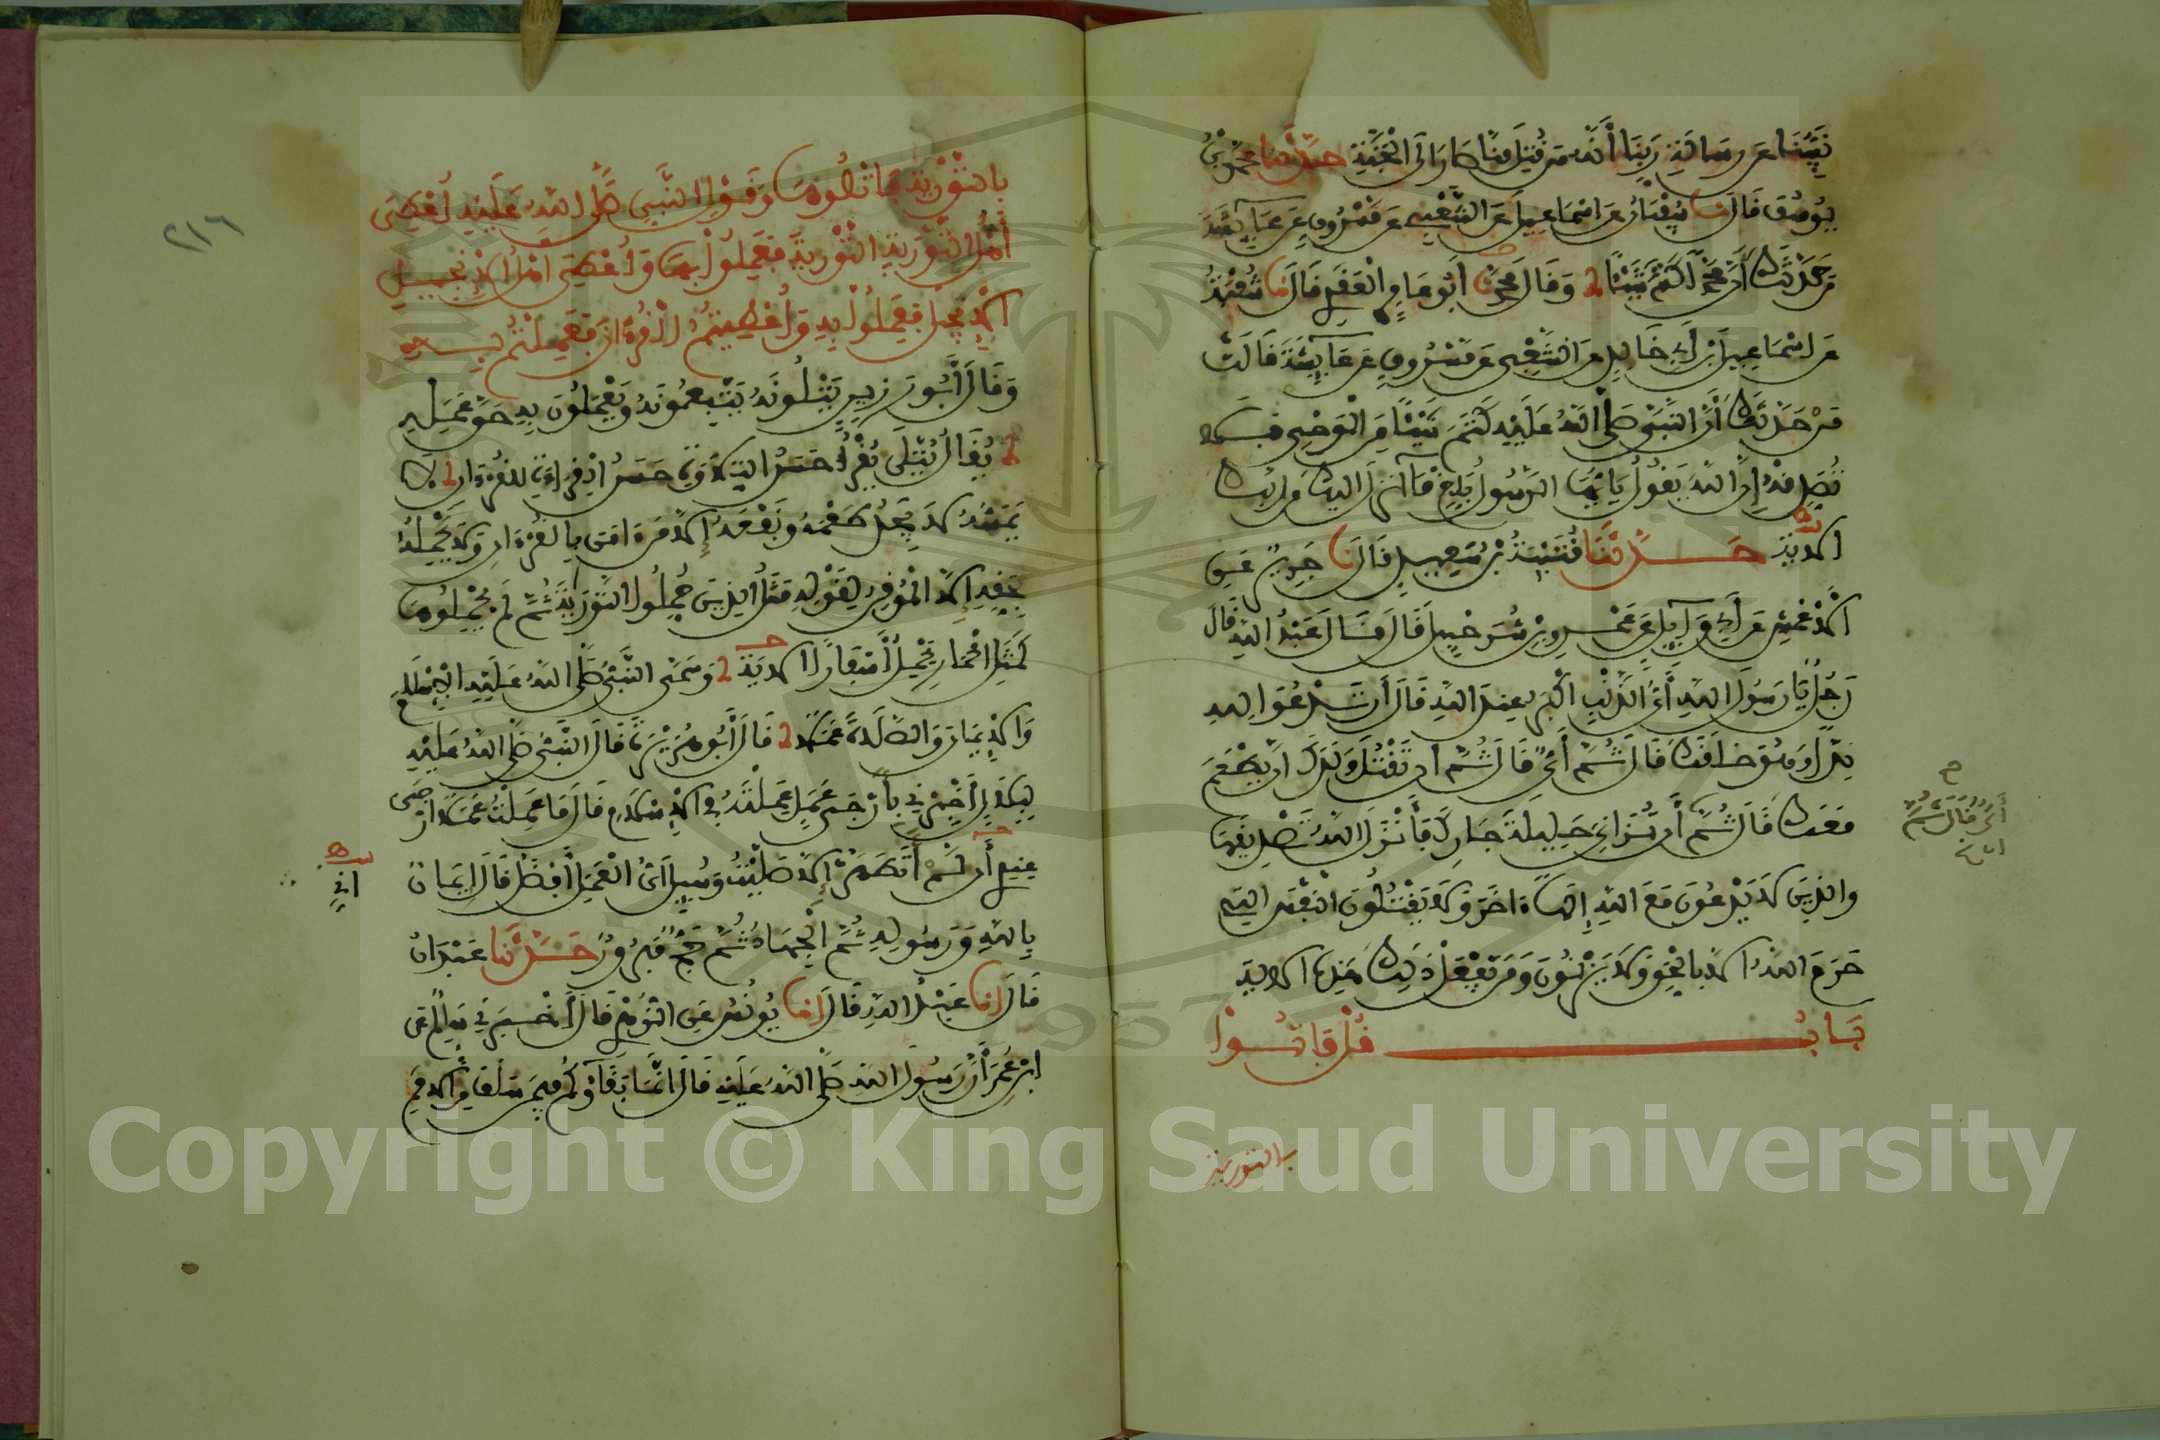 نَبِيُّنَا عَن رِسَالَةِ رَبِّنَا أَنَّهُ مَن قُتِلَ مِنَّا صَارَ إلَى الْجَنَّةِ حَدَّثَنَا مُحَمَّدُ بْنُ
يُوسُفَ قَالَ نَا سُفْيَانُ عَنِ اسْمَاعِيلَ عَنِ الشَّعْبِيِّ عَن مَسْرُوقٍ عَن عَآيِشَةَ
مَنْ حَدَّثَكَ أَنَّ مُحَمَّدًا كَتَمَ شَيْئًا وَقَالَ مُحَمَّدٌ نَا أَبُو عَامِرٍ الْعَقَدِي قَالَ نَا شُعْبَةُ
عَنِ اسْمَاعِيلَ ابْنِ أَبِي خَالِدٍ عَنِ الشَّعْبِي عَن مَسْرُوقٍ عَن عَآيِشَةَ قَالَتْ
مَنْ حَدَّثَكَ أَنَّ النَّبِيَّ صَلَّى اللهُ عَلَيْهِ كَتَمَ شَيْئًا مِنَ الْوَحْيِ فَلَا
تُصَدِّقْهُ إِنَّ اللهَ يَقُولُ يَا أَيُّهَا الرَّسُولُ بَلِّغْ مَا أُنزِلَ إلَيْكَ مِن رَبِّكَ
الايَةَ حَدَّثَنَا قُتَيْبَةُ بْنُ سَعِيدٍ قَالَ نَا جَرِيرٌ عَنِ
الأَعْمَشِ عَن أَبِي وَآيِلٍ عَن عَمْرِو بْنِ شُرَحْبِيلَ قَالَ قَالَ عَبْدُ اللهِ قَالَ
رَجُلٌ يَا رَسُولَ اللهِ أَيُّ الذَّنْبِ أَكْبَرُ عِندَ اللهِ قَالَ أَن تَدْعُوَ لِلهِ
نِدًّا وَهُوَ خَلَقَكَ قَالَ ثُمَّ أَيّ قَالَ ثُمَّ أَن تَقْتُلَ وَلَدَكَ أَن يَطْعَمَ
مَعَكَ قَالَ ثُمَّ أَن تُزَانِيَ حَلِيلَةَ جَارِكَ فَأَنْزَلَ اللهُ تَصْدِيقَهَا
وَالذِينَ لَا يَدْعُونَ مَعَ اللهِ إِلَهًا ـاخَرَ وَلَا يَقْتُلُونَ النَّفْسَ التِي
حَرَّمَ اللهُ الَّا بِالْحَقِّ وَلَا يَزْنُونَ وَمَن يَفْعَلْ ذَلِكَ الايَة
بَابُ قُلْ فَاتُوا
بالتورية
أيّ قال ثم
ان
٢١٦
بِالتَّوْرَيةِ فَاتْلُوهَا وَقَوْلِ النَّبِيِّ صَلَّى اللهُ عَلَيْهِ أُعْطِيَ
أَهْلُ التَّوْرَيةِ التَّوْرَيةَ فَعَمِلُوا بِهَا وَأُعْطِيَ أَهْلُ الانْجِيلِ
الانْجِيلَ فَعَمِلُوا بِهِ وَأُعْطِيتُمُ الْقُرْءَانَ فَعَمِلْتُم بِهِ
وَقَالَ أَبُو رَزِينٍ يَتْلُونَهُ يَتَّبِعُونَهُ وَيَعْمَلُونَ بِهِ حَقَّ عَمَلِهِ
يُقَالُ يُتْلَى يُقْرَأُ حَسَنُ التِّلَاوَةِ حَسَنُ الْقِرَاءَةِ لِلْقُرْءَانِ لَا
يَمَسُّهُ لَا يَجِدُ طَعْمَهُ وَنَفْعَهُ إِلَّا مَن ءَامَنَ بِالْقُرْءَانِ وَلَا يَحْمِلُهُ
بِحَقِّهِ إِلَّا الْمُوقِنُ لِقَوْلِهِ مَثَلُ الذِينَ حُمِّلُوا التَّوْرَيةَ ثُمَّ لَمْ يَحْمِلُوهَا
كَمَثَلِ الْحِمَارِ يَحْمِلُ أَسْفَارًا الايَةَ وَسَمَّى النَّبِيُّ صَلَّى اللهُ عَلَيْهِ الاسْلَامَ
وَالايمَانَ وَالصَّلَاةَ عَمَلًا قَالَ أَبُو هُرَيْرَةَ قَالَ النَّبِيُّ صَلَّى اللهُ عَلَيْهِ
لِبِلَالٍ أَخْبِرْنِي بِأَرْجَى عَمَلٍ عَمِلْتَهُ فِي الاسْلَامِ قَالَ مَا عَمِلْتُ عَمَلًا أَرْجَى
عِندِي أَن لَمْ أَتَطَهَّرْ إِلَّا صَلَّيْتُ وَسُيِلَ أَيُّ الْعَمَلِ أَفْضَلُ قَالَ إِيمَانٌ
اني
بِاللهِ وَرَسُولِهِ ثُمَّ الْجِهَادُ ثُمَّ حَجٌّ مَبْرُورٌ حَدَّثَنَا عَبْدَانُ
قَالَ انَا عَبْدُ اللهِ قَالَ انَا يُونُسُ عَنِ الزُّهْرِي قَالَ أَخْبَرَنِي سَالِمٌ عَنِ
ابْنِ عُمَرَ أَنَّ رَسُولَ اللهِ صَلَّى اللهُ عَلَيْهِ قَالَ إِنَّمَا بَقَآؤُكُمْ فِيمَن سَلَفَ مِنَ الامَمِ
Copyright © King Saud University
1957